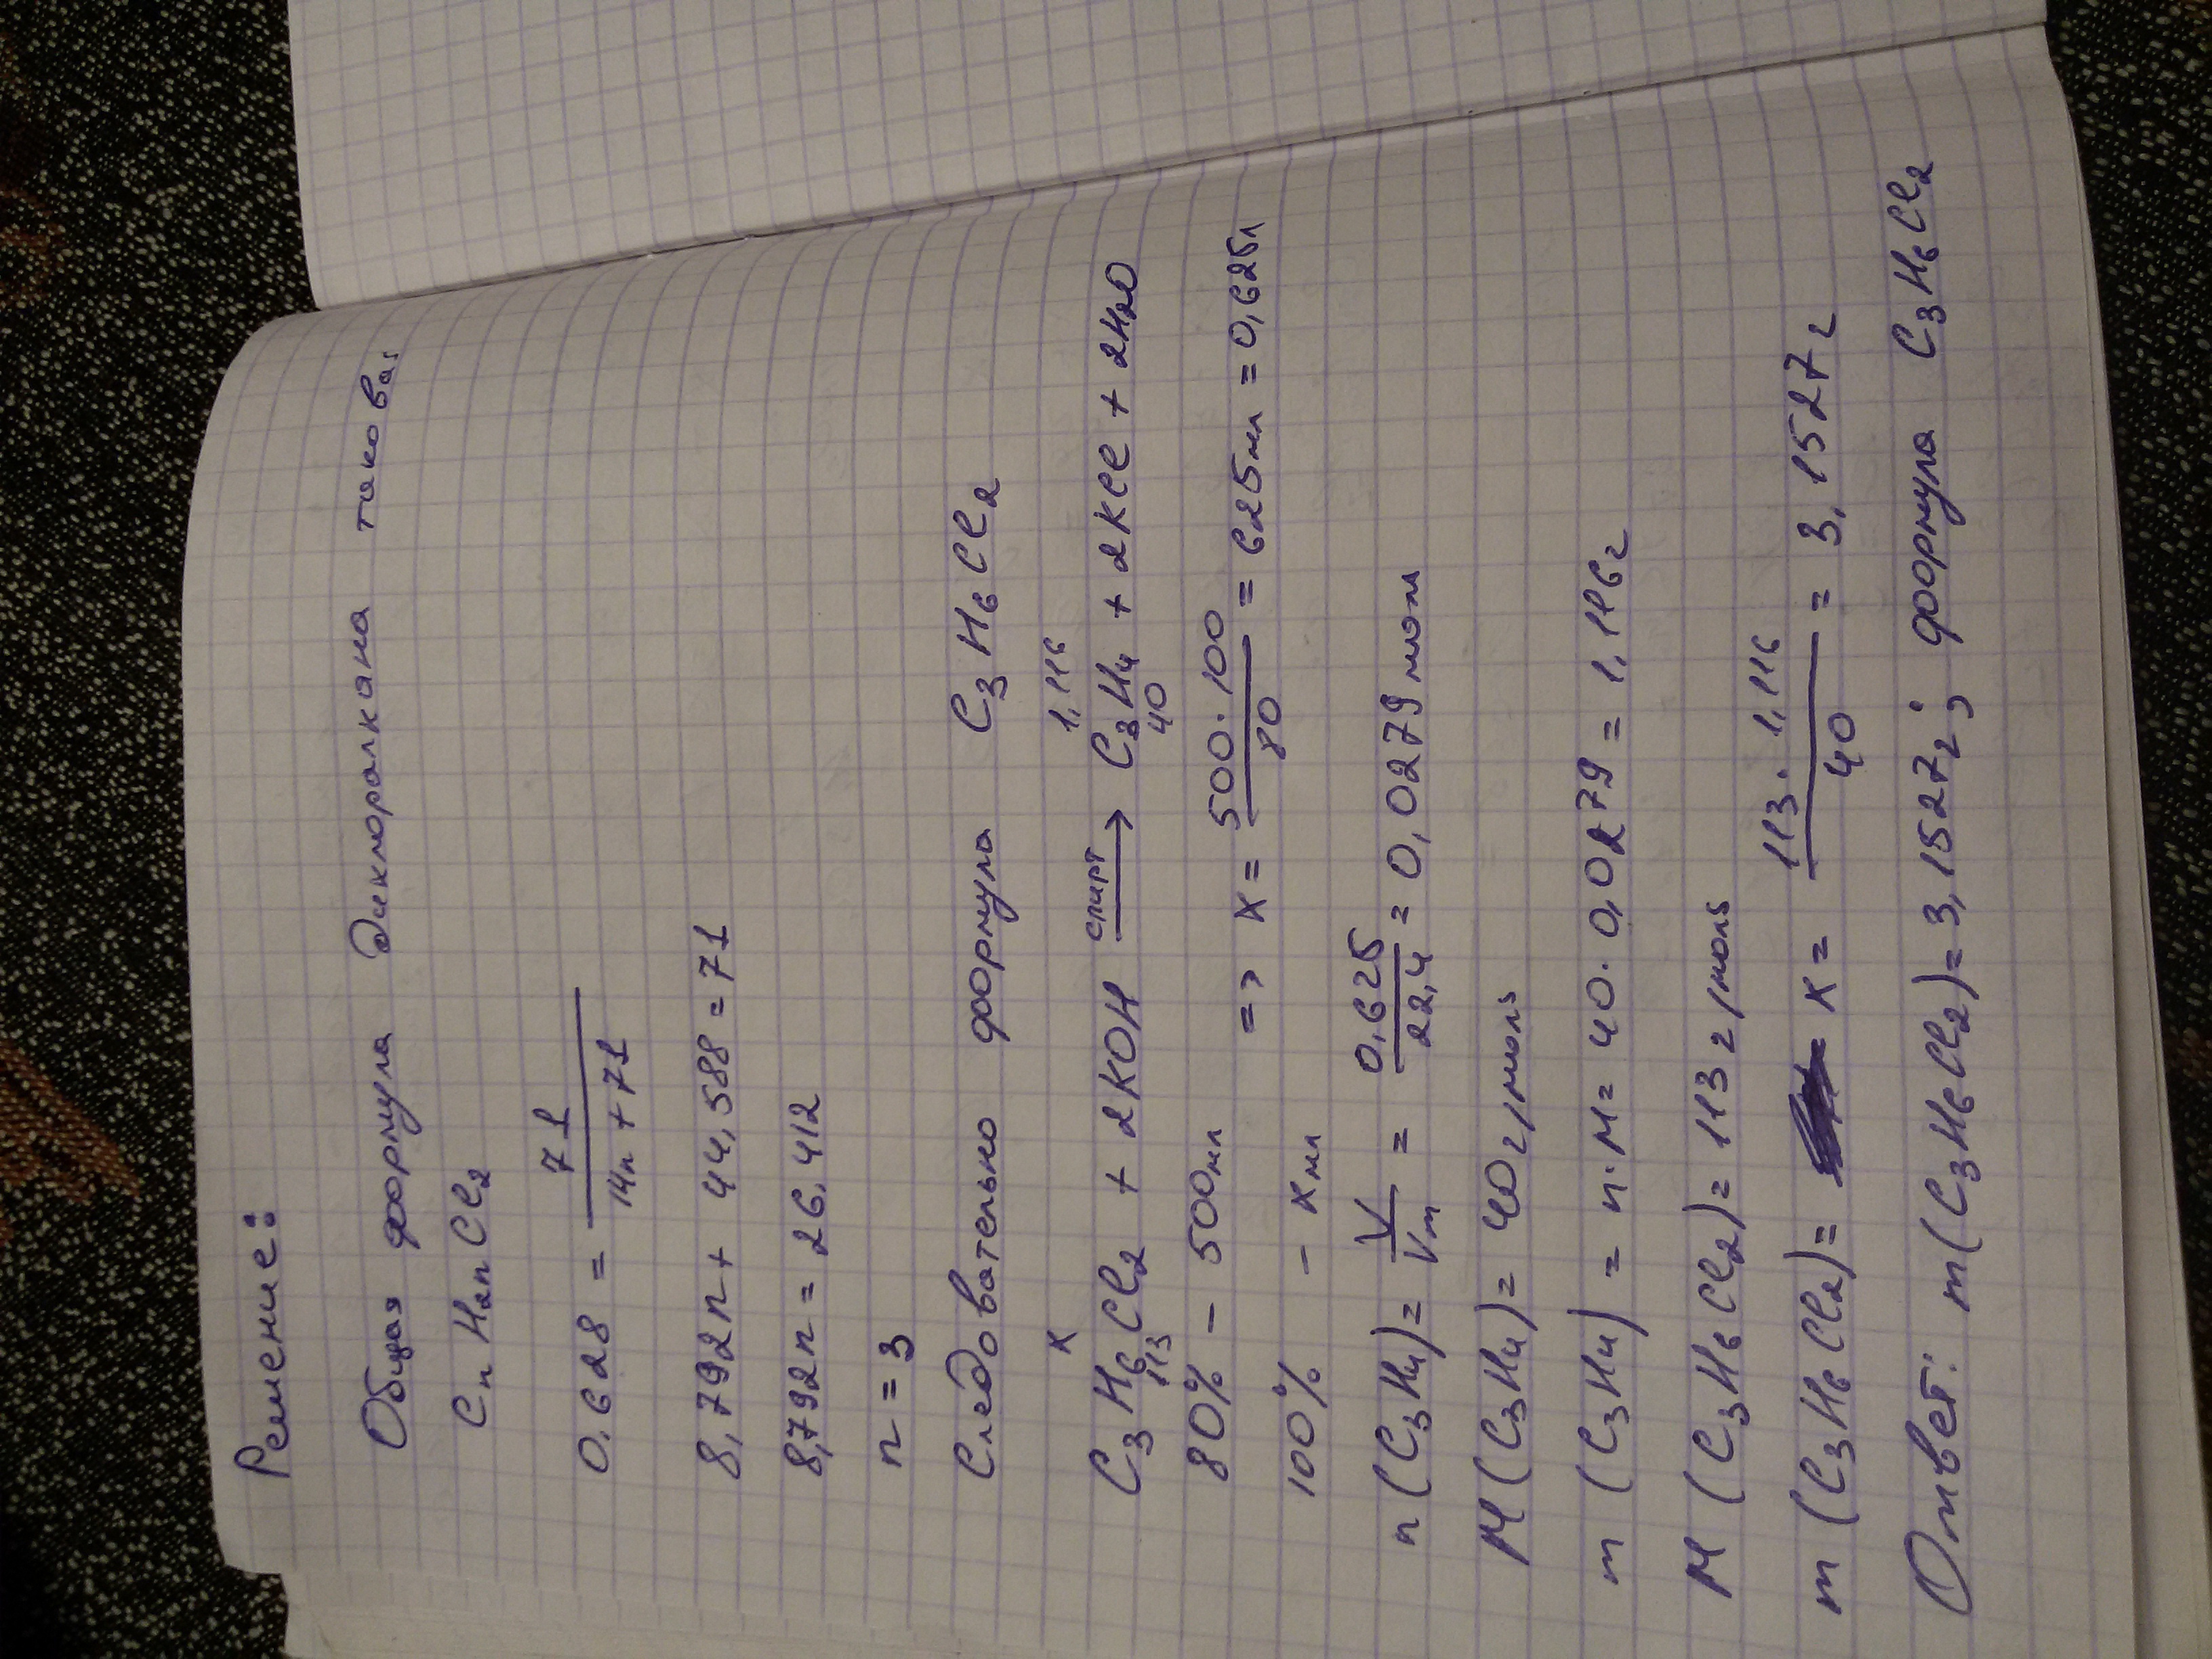 Решение:
Общая формула дихлоралкана такова:
CnH2nCl2
0,628 = 71 / 14n + 71
8,792n + 44,588 = 71
8,792n = 26,412
n = 3
Следовательно формула C3H6Cl2
x 1,116
C3H6Cl2 + 2KOH спирт → C3H4 + 2KCl + 2H2O
113 40
80% – 500мл => x = 500·100 / 80 = 625мл = 0,625л
100% – xмл
n(C3H4) = V / Vm = 0,625 / 22,4 = 0,0279моль
M(C3H4) = 40г/моль
m(C3H4) = n·M = 40·0,0279 = 1,116г
M(C3H6Cl2) = 113г/моль
m(C3H6Cl2) = x = 113·1,116 / 40 = 3,1527г
Ответ: m(C3H6Cl2) = 3,1527г; формула C3H6Cl2